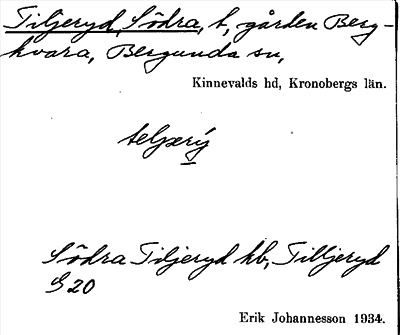 Tiljeryd, Södra, t, gården Berg-
kvara, Bergunda sn,
Kinnevalds hd, Kronobergs län.
Södra Tiljeryd hb, Tilljeryd
G 20
Erik Johannesson 1934.